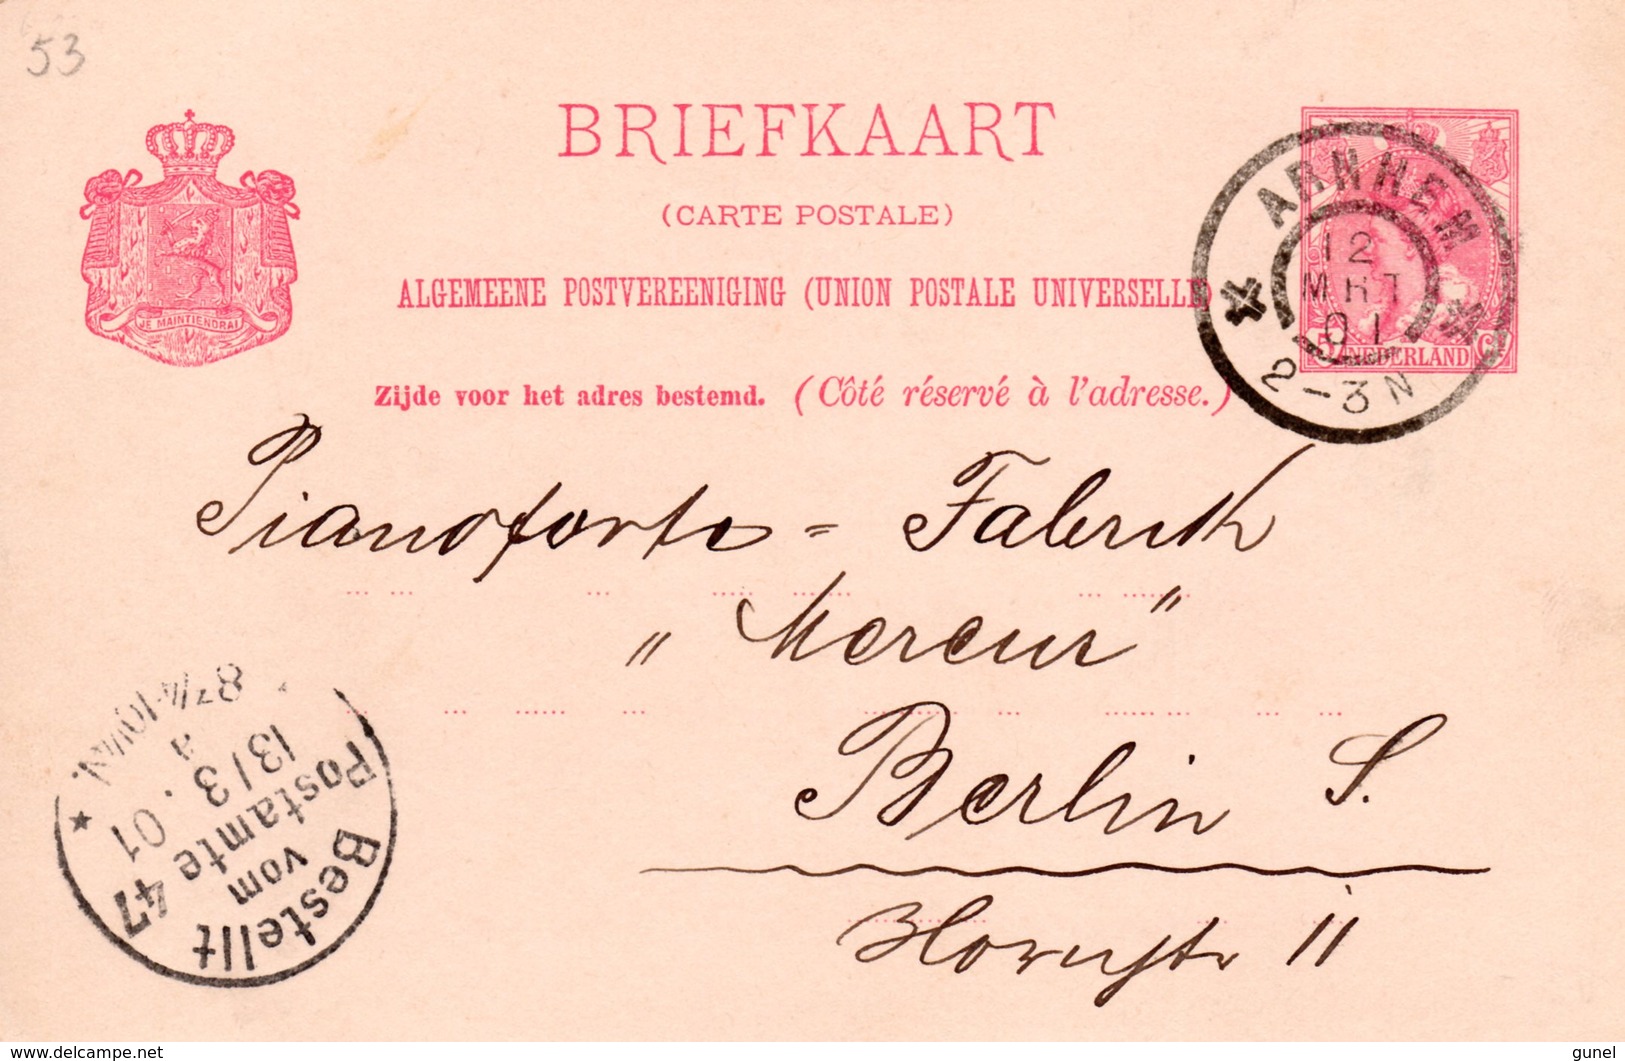 53
BRIEFKAART
(CARTE POSTALE)
ALGEMEENE POSTVEREENIGING (UNION POSTALE UNIVERSELLE)
Zijde voor het adres bestemd. (Côté réservé à l'adresse.)
JE MAINTIENDRAI
ARNHEM
12
MRT
01
2-3N
5 NEDERLAND Ct
Pianoforte = Fabrik
„Mercur"
Berlin S.
Hornstr 11
Bestellt
vom
Postamte 47
13/3.01
delcampe.net
gunel